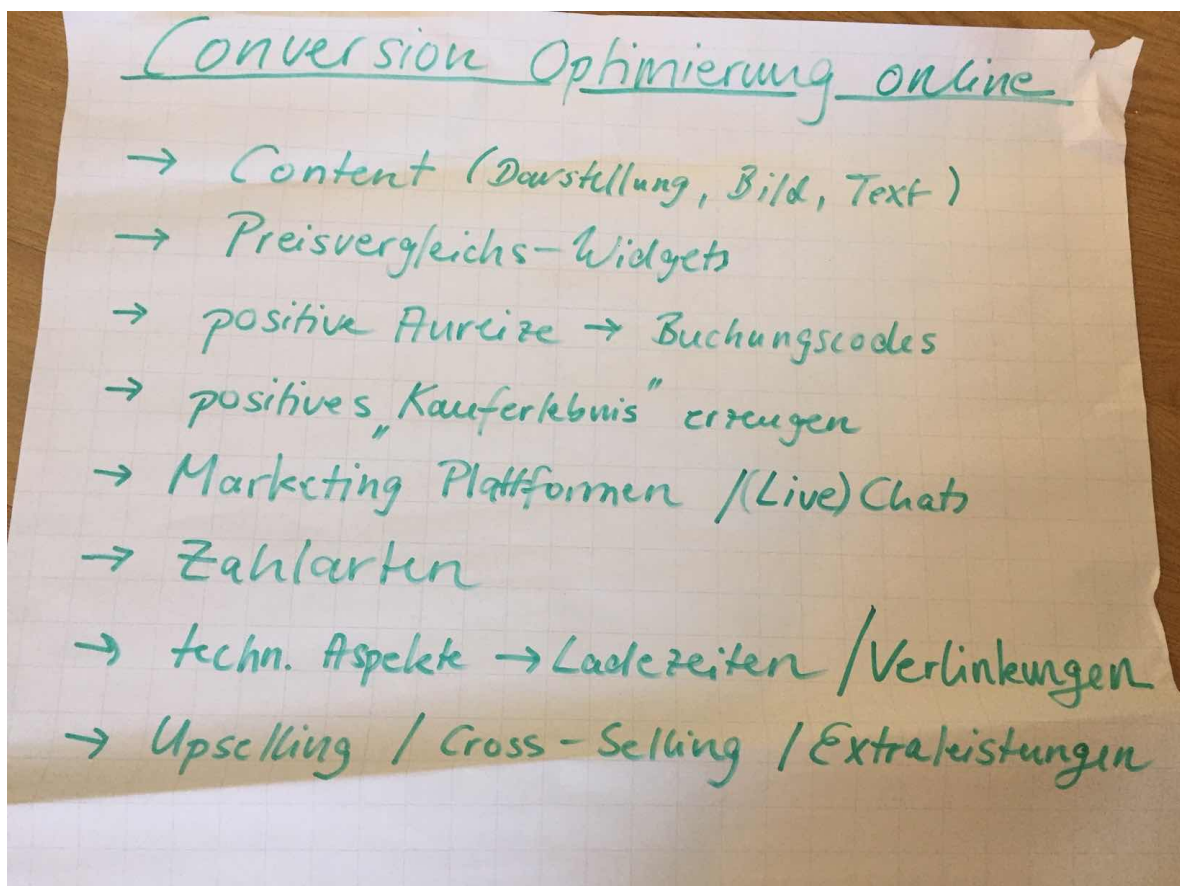 Conversion Optimierung online
→ Content (Darstellung, Bild, Text)
→ Preisvergleichs-Widgets
→ positive Anreize → Buchungscodes
→ positives „Kauferlebnis" erzeugen
→ Marketing Plattformen /(Live) Chats
→ Zahlarten
→ techn. Aspekte → Ladezeiten / Verlinkungen
→ Upselling / Cross-Selling / Extraleistungen